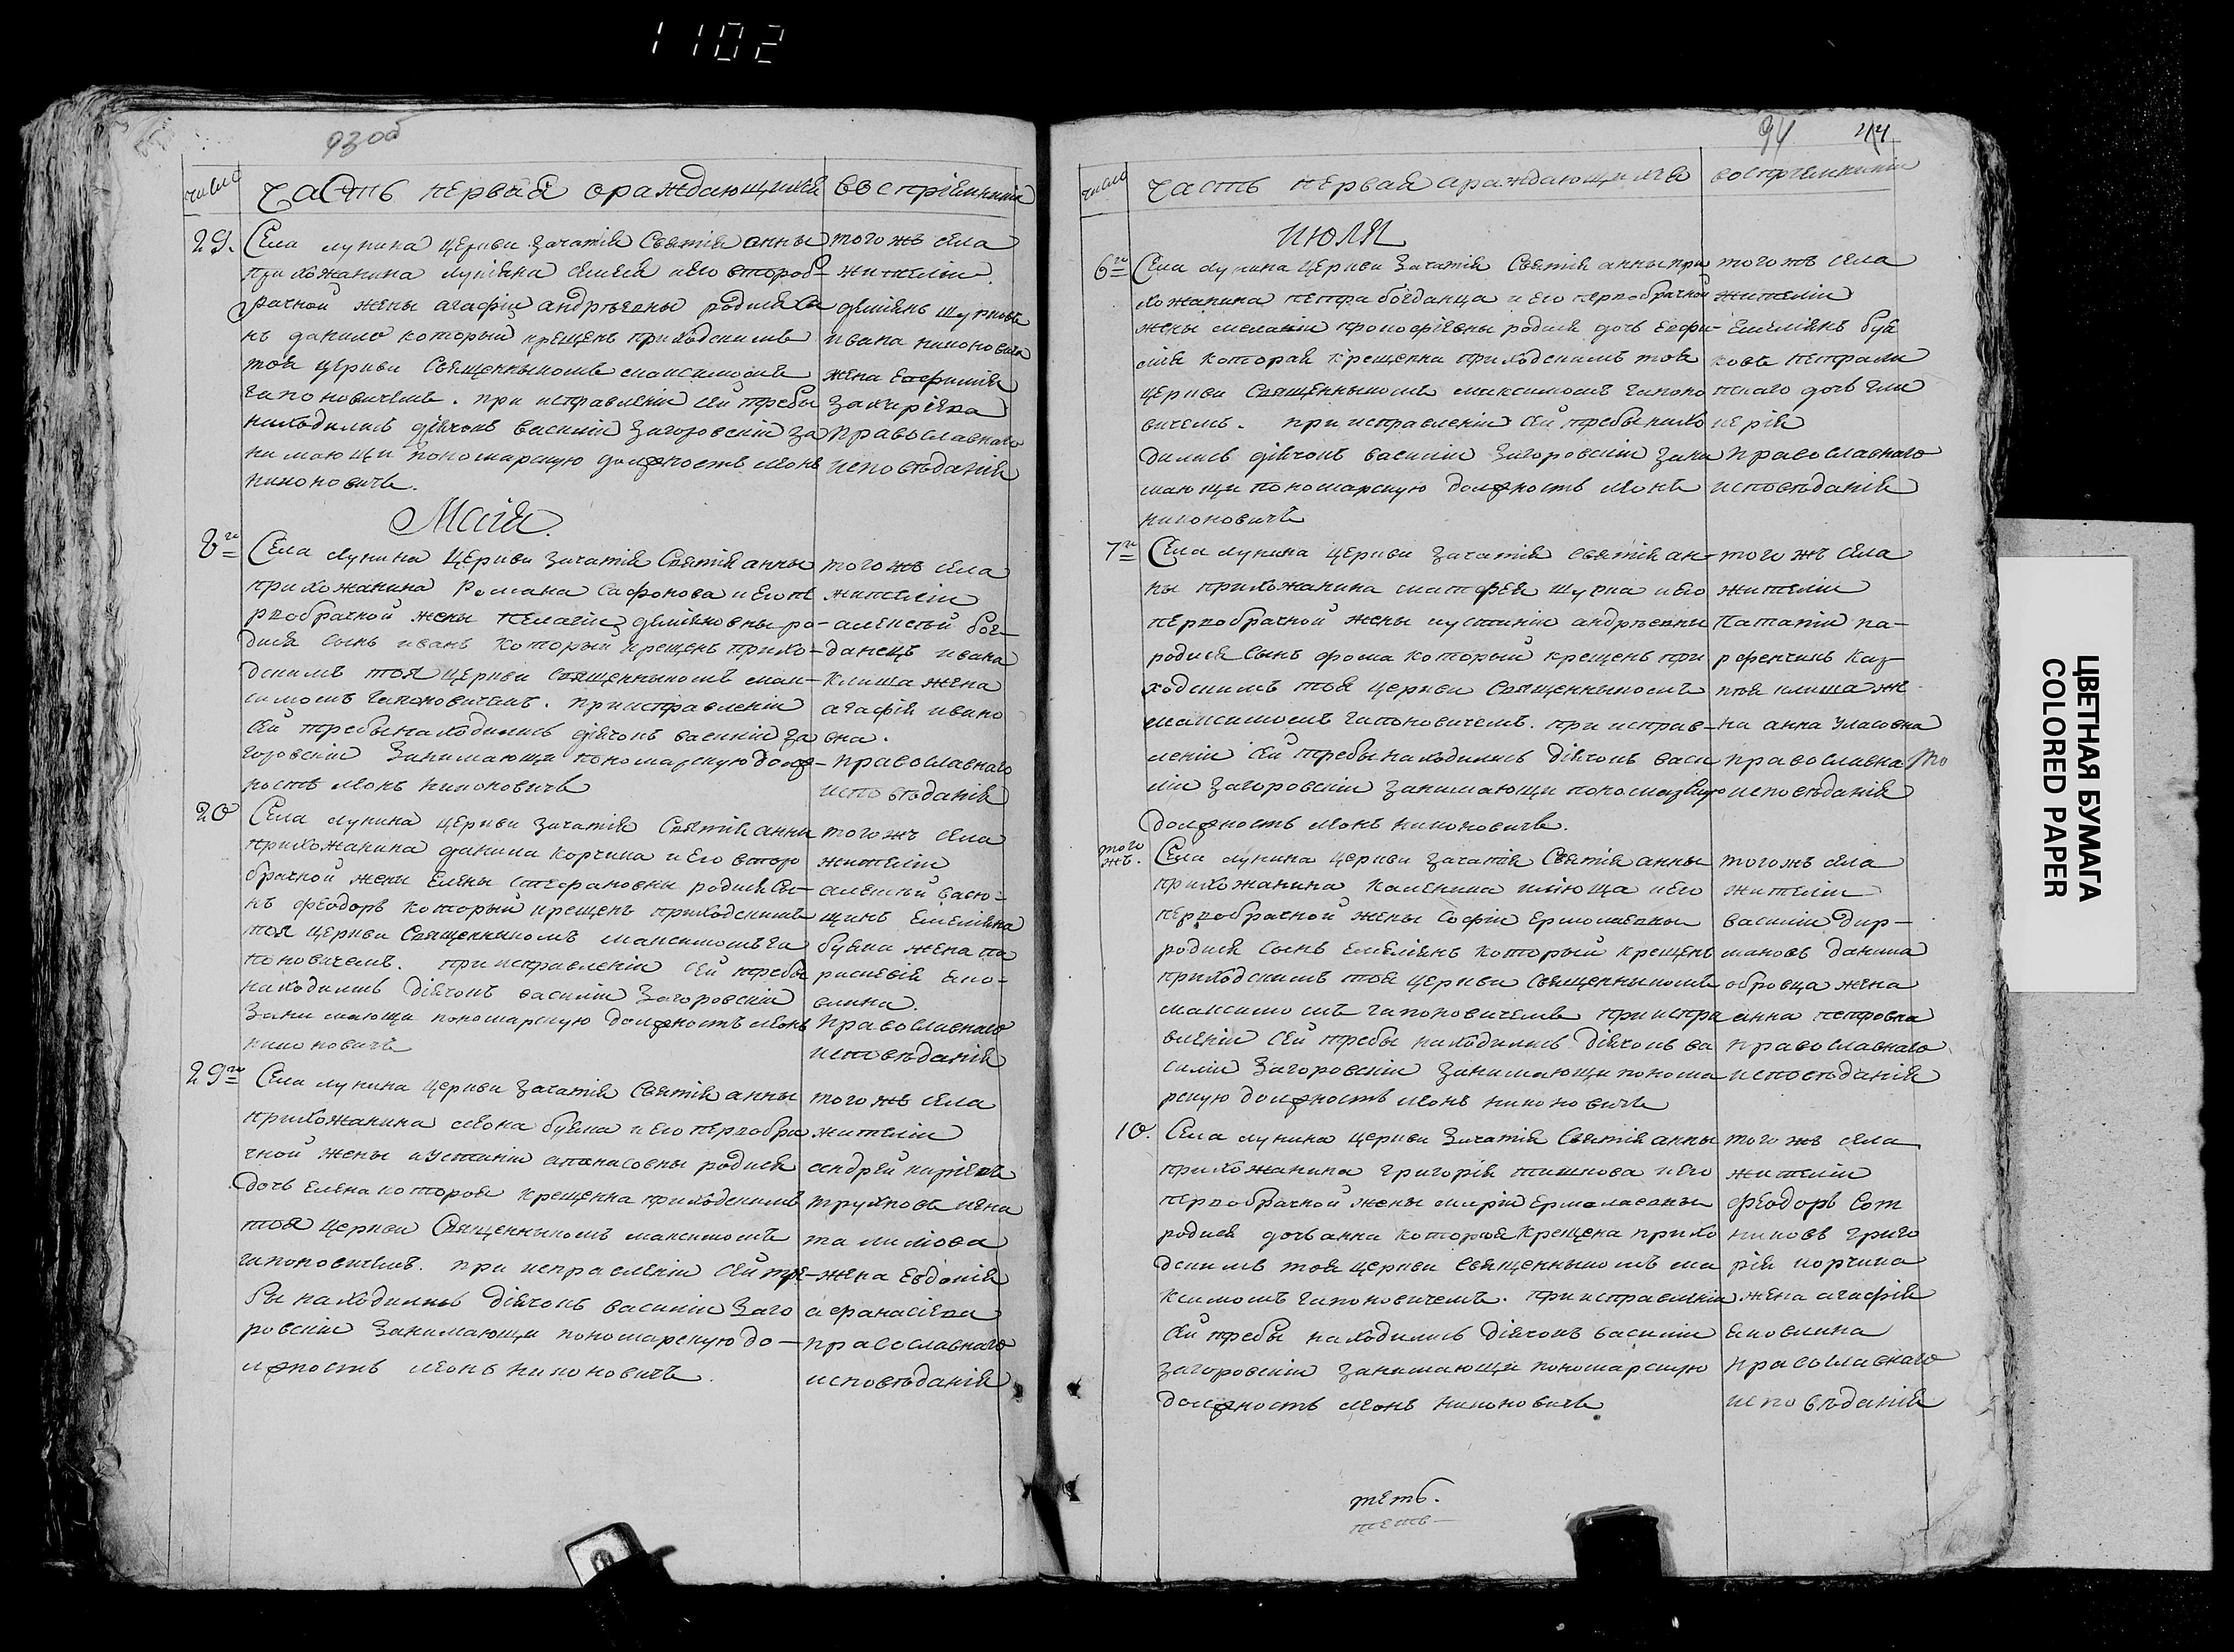 1102
93об
число
Часть первая ораждающихся
восприемники
29.
Села лунина церкви зачатія Святія анны
прихожанина лукіяна семея иего второб-
рачной жены агафіи андрѣевны родился сы
нъ данило который крещенъ приходскимъ
тоя церкви Священникомъ максимомъ
гапоновичемъ. при исправленіи сей требы
находились діячокъ василій Загоровскій за
нимающи пономарскую должность леонъ
никоновичъ.
того жъ села
жители
деміянъ шурковъ
ивана никоновича
жена евфимія
захаріева
православнаго
исповѣданія
Маія
8го
Села лунина Церкви Зачатія Святія анны
прихожанина Романа Сафонова иего пе
рвобрачной жены пелагіи деміяновны ро-
дился сынъ иванъ который крещенъ прихо-
дскимъ тоя церкви священникомъ мак-
симомъ гапоновичемъ. при исправленіи
сей требы находились діячокъ василій За
горовскій Занимающи пономарскую долж-
ность леонъ никоновичъ
того жъ села
жители
алексѣй бог-
данецъ ивана
клиша жена
агафія ивано
вна.
православнаго
исповѣданія
20
Села лунина церкви зачатія Святія анны
прихожанина данила корчика и его второ
брачной жены Елены стефановны родился сы-
нъ феодоръ который крещенъ приходскимъ
тоя церкви Священникомъ максимомъ га
поновичемъ. при исправленіи сей требы
находились діячокъ василій Загоровскій
Занимающи пономарскую должность леонъ
никоновичъ
того жъ села
жители
алексѣй васю-
щикъ емеліяна
буяка жена па
раскевія яко-
влина.
православнаго
исповѣданія
29го
Села лунина церкви Зачатія Святія анны
прихожанина леона буяка и его первобра
чной жены иустиніи апанасовны родился
дочь елена которая крещенна приходскимъ
тоя церкви Священникомъ максимомъ
гапоновичемъ. при исправленіи сей тре-
бы находились діячокъ василій Заго
ровскій Занимающи пономарскую до-
лжность леонъ никоновичъ.
того жъ села
жители
андрей кирѣевъ
труховъ игна
та климова
жена Евдокія
афанасіева
православнаго
исповѣданія
94
число
Часть первая ораждающихся
восприемники
июля
6го
Села лунина Церкви Зачатія Святія анны при
хожанина петра богданца и его первобрачной
жены меланіи прокофіевны родися дочь евфи-
мія которая крещенна приходскимъ тоя
церкви Священникомъ максимомъ гапоно
вичемъ. при исправленіи сей требы нахо
дились діячокъ василій Загоровскій зани
мающи пономарскую должность леонъ
никоновичъ
того жъ села
жители
Емеліянъ буя
ковъ петра ли
пскаго дочь гли
керія
православнаго
исповѣданія
7го
Села лунина церкви зачатія святія ан-
ны прихожанина матфея шурка и его
первобрачной жены иустиніи андрѣевны
родися Сынъ фома который крещенъ при
ходскимъ тоя церкви Священникомъ
максимомъ гапоновичемъ. при исправ-
леніи сей требы находились діячокъ васи
лій загоровскій занимающи пономарскую
должность леонъ никоновичъ.
того жъ села
жители
Патапій па-
рфенчикъ каз-
мы клиша же
на анна Уласовна
православнаго
исповѣданія
того
жъ.
Села лунина церкви зачатія Святія анны
прихожанина каленика иліюща и его
первобрачной жены Софіи ермолаевны
родися сынъ емеліянъ который крещенъ
приходскимъ тоя церкви священникомъ
максимомъ гапоновичемъ при испра
вленіи сей требы находились діячокъ ва
силій Загоровскій Занимающи понома
рскую должность леонъ никоновичъ
того жъ села
жители
василій дир-
мановъ данила
обровца жена
анна петровна
православнаго
исповѣданія
10.
Села лунина церкви Зачатія Святія анны
прихожанина григорія тишкова и его
первобрачной жены маріи Ермолаевны
родися дочь анна которая крещена прихо
дскимъ тоя церкви священникомъ ма
ксимомъ гапоновичемъ. при исправленіи
сей требы находились діячокъ василій
загоровскій занимающи пономарскую
должность леонъ никоновичъ
того жъ села
жители
феодоръ Сот
никовъ григо
рія корчика
жена агафія
яковлина
православнаго
исповѣданія
ЦВЕТНАЯ БУМАГА
COLORED PAPER